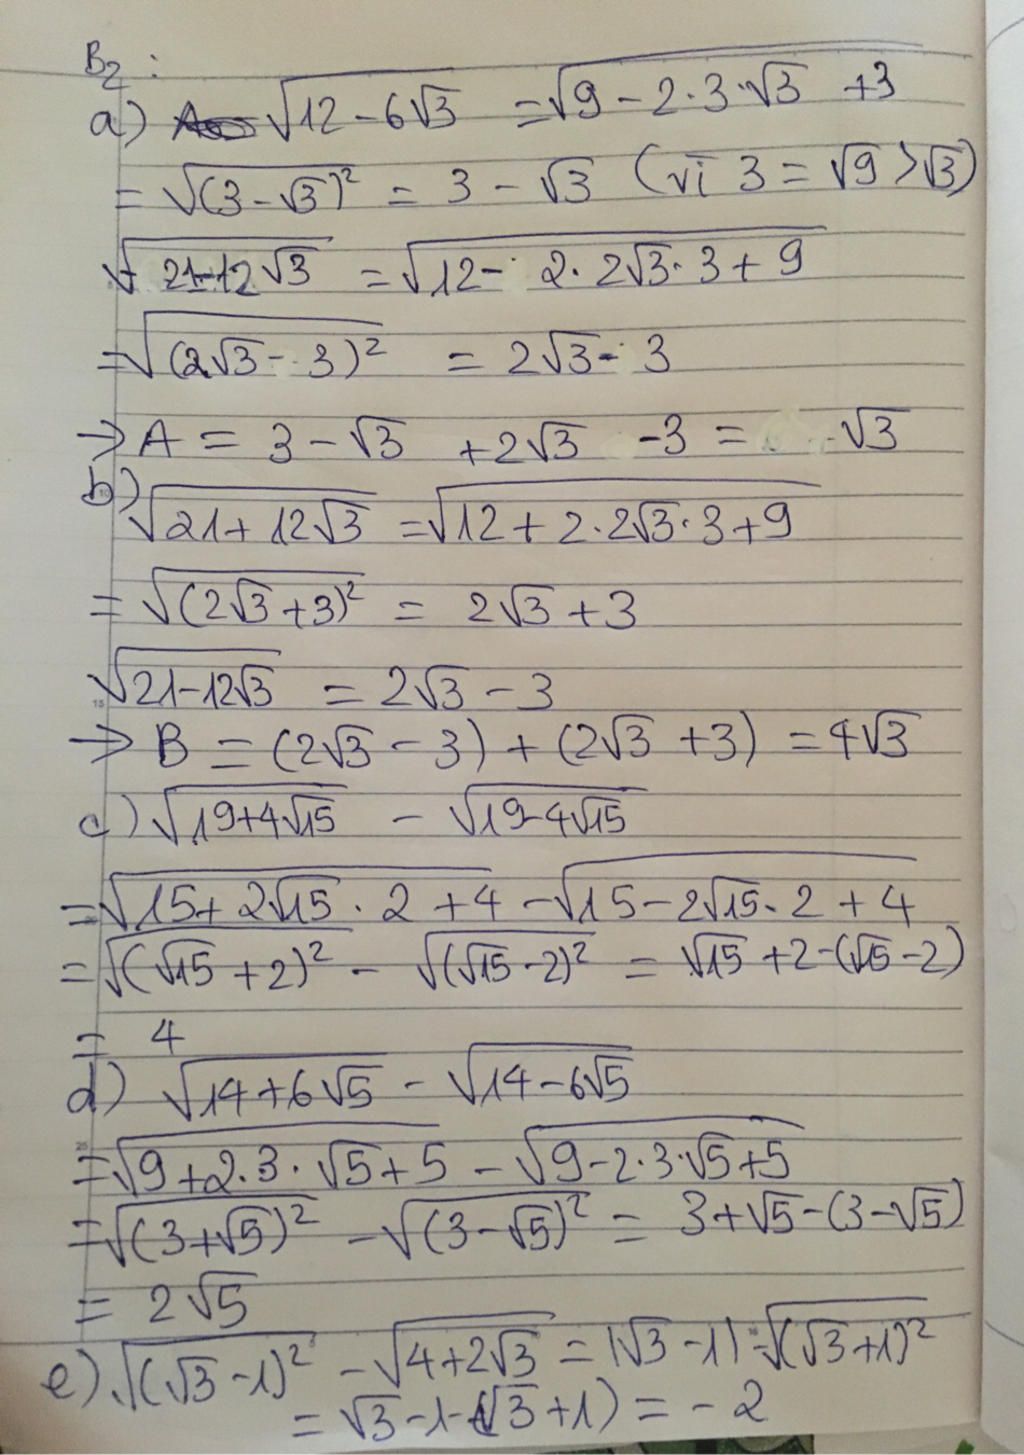 B2 :
a) √(12 - 6√3) = √(9 - 2·3·√3 + 3)
= √((3 - √3)²) = 3 - √3 (vì 3 = √9 > √3)
√(21 - 12√3) = √(12 - 2·2√3·3 + 9)
= √((2√3 - 3)²) = 2√3 - 3
→ A = 3 - √3 + 2√3 - 3 = √3
b) √(21 + 12√3) = √(12 + 2·2√3·3 + 9)
= √((2√3 + 3)²) = 2√3 + 3
√(21 - 12√3) = 2√3 - 3
→ B = (2√3 - 3) + (2√3 + 3) = 4√3
c) √(19 + 4√15) - √(19 - 4√15)
= √(15 + 2√15 · 2 + 4) - √(15 - 2√15 · 2 + 4)
= √((√15 + 2)²) - √((√15 - 2)²) = √15 + 2 - (√15 - 2)
= 4
d) √(14 + 6√5) - √(14 - 6√5)
= √(9 + 2·3·√5 + 5) - √(9 - 2·3·√5 + 5)
= √((3 + √5)²) - √((3 - √5)²) = 3 + √5 - (3 - √5)
= 2√5
e) √((√3 - 1)²) - √(4 + 2√3) = |√3 - 1| - √((√3 + 1)²)
= √3 - 1 - (√3 + 1) = - 2